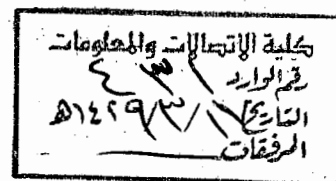 كلية الاتصالات والمعلومات
رقم الوارد ٤٣١
التاريخ ١٧/٣/١٤٢٩هـ
المرفقات